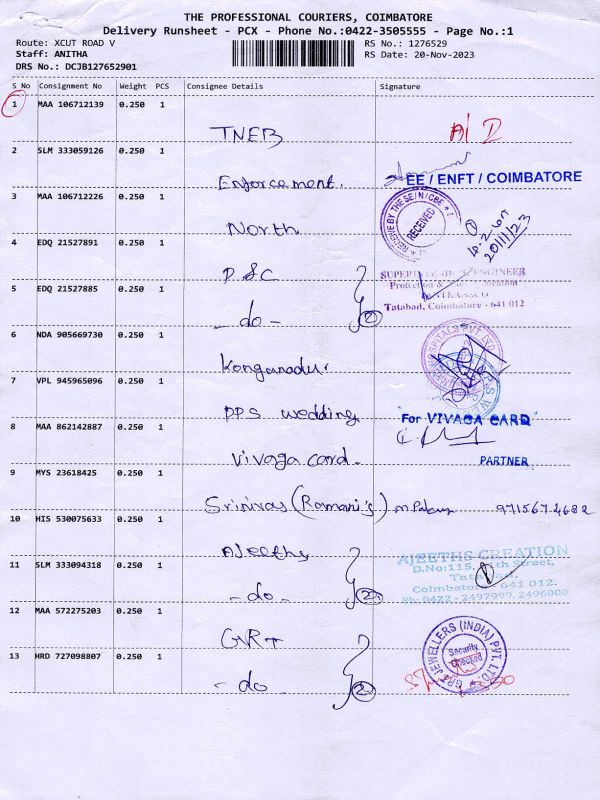 THE PROFESSIONAL COURIERS, COIMBATORE
Delivery Runsheet - PCX - Phone No.:0422-3505555 - Page No.:1
Route: XCUT ROAD V
RS No.: 1276529
Staff: ANITHA
RS Date: 20-Nov-2023
DRS No.: DCJB127652901
S No Consignment No Weight PCS Consignee Details Signature
1 MAA 106712139 0.250 1
TNEB
2 SLM 333059126 0.250 1
EE / ENFT / COIMBATORE
Enforcement.
3 MAA 106712226 0.250 1
RECEIVE BY THE SE/N/CBE
RECEIVED
North
20/11/23
4 EDQ 21527891 0.250 1
P.SC
SUPERINTENDING ENGINEER
5 EDQ 21527885 0.250 1
Tatabad, Coimbatore - 641 012
- do - 2
6 NDA 905669730 0.250 1
Konganadu.
7 VPL 945965096 0.250 1
PPS wedding
For VIVAGA CARD
8 MAA 862142887 0.250 1
Vivaga card -
PARTNER
9 MYS 23618425 0.250 1
Srinivas (Ramani's) 9715674682
10 HIS 530075633 0.250 1
Ajeeths
AJEETHS CREATION
11 SLM 333094318 0.250 1
D.No:115, Street,
Tatabad,
Coimbatore - 641 012.
Ph: 0422 - 2497999, 2496000
- do - 2
12 MAA 572275203 0.250 1
GRT
GRT JEWELLERS (INDIA) PVT. LTD.
Security
Checked
13 HRD 727098807 0.250 1
- do - 2